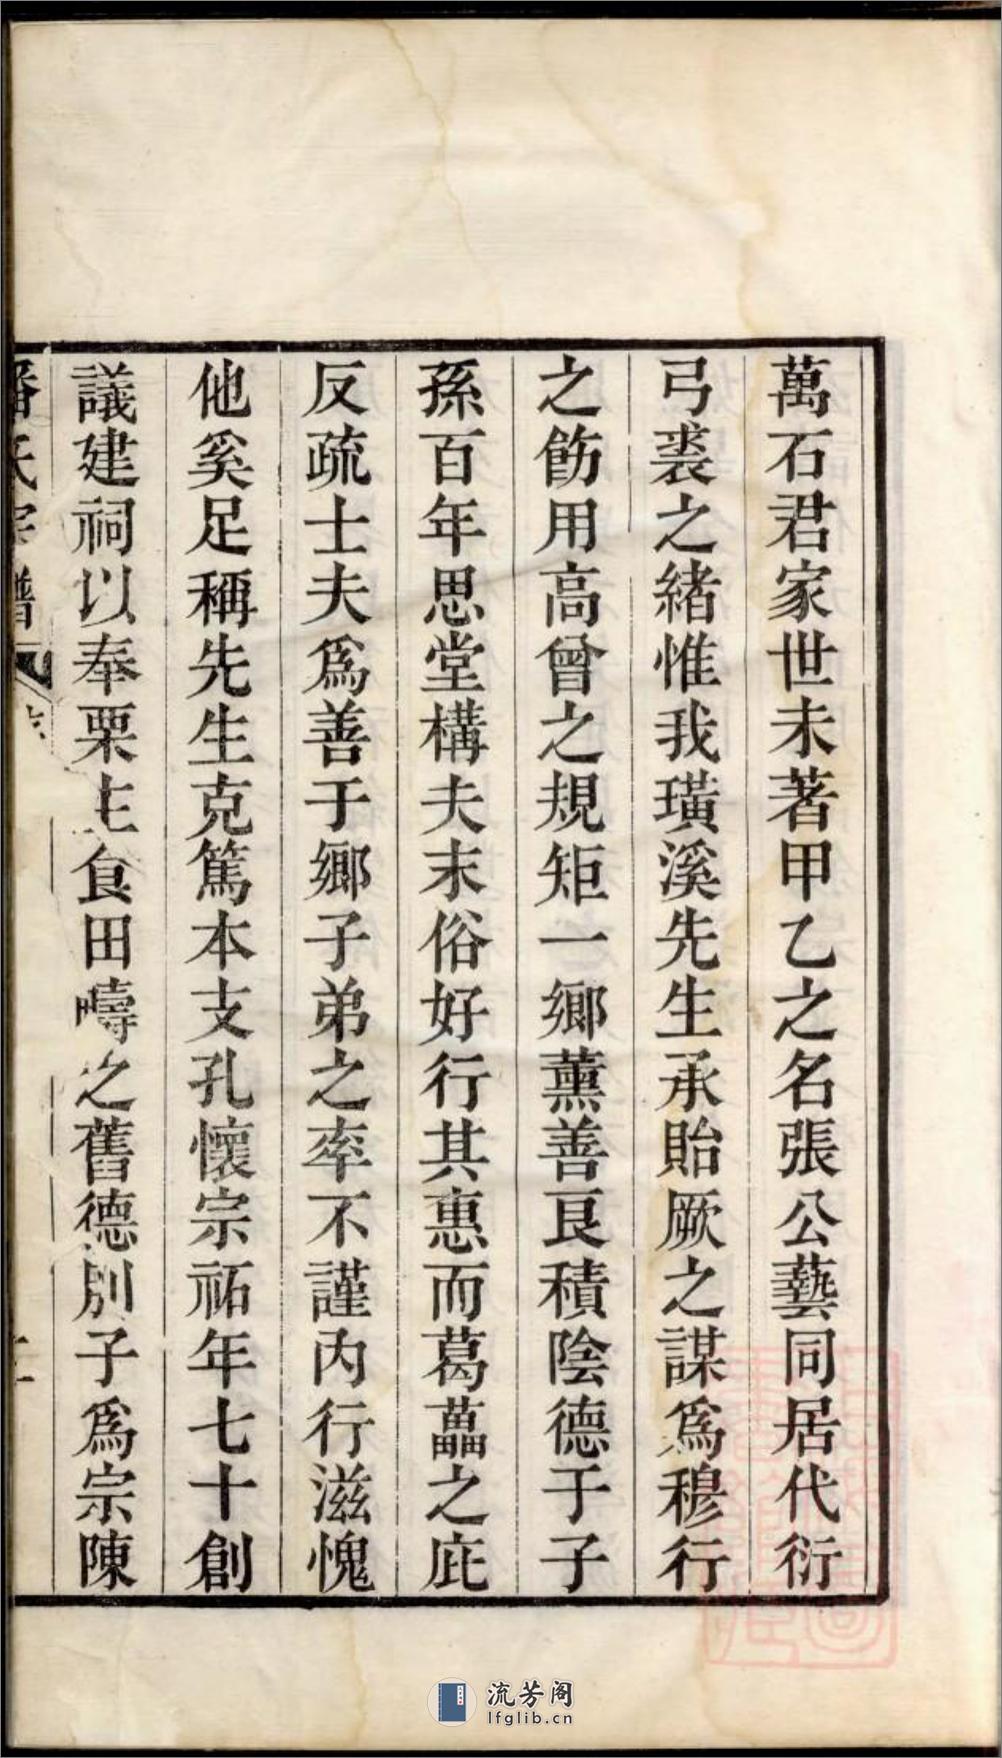 萬石君家世未著甲乙之名張公藝同居代衍
弓裘之緒惟我璜溪先生承貽厥之謀爲穆行
之飭用高曾之規矩一鄉薰善艮積陰德于子
孫百年思堂構夫末俗好行其惠而葛藟之庇
反疏士夫爲善于鄉子弟之率不謹內行滋愧
他奚足稱先生克篤本支孔懷宗祏年七十創
議建祠以奉栗主食田疇之舊德別子爲宗陳
潘氏宗譜
流芳阁
lfglib.cn